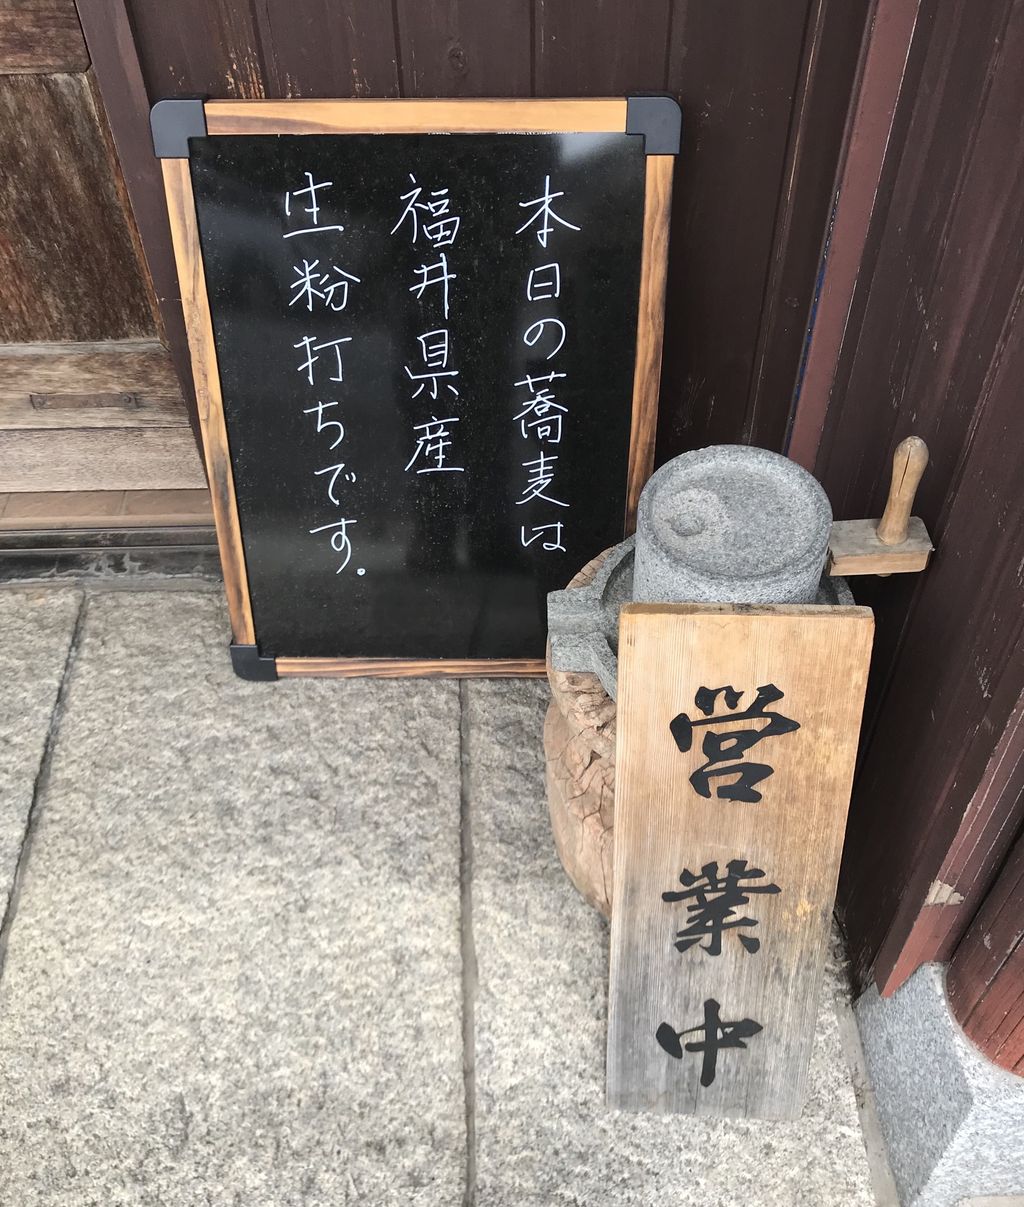 本日の蕎麦は
福井県産
生粉打ちです。
営業中